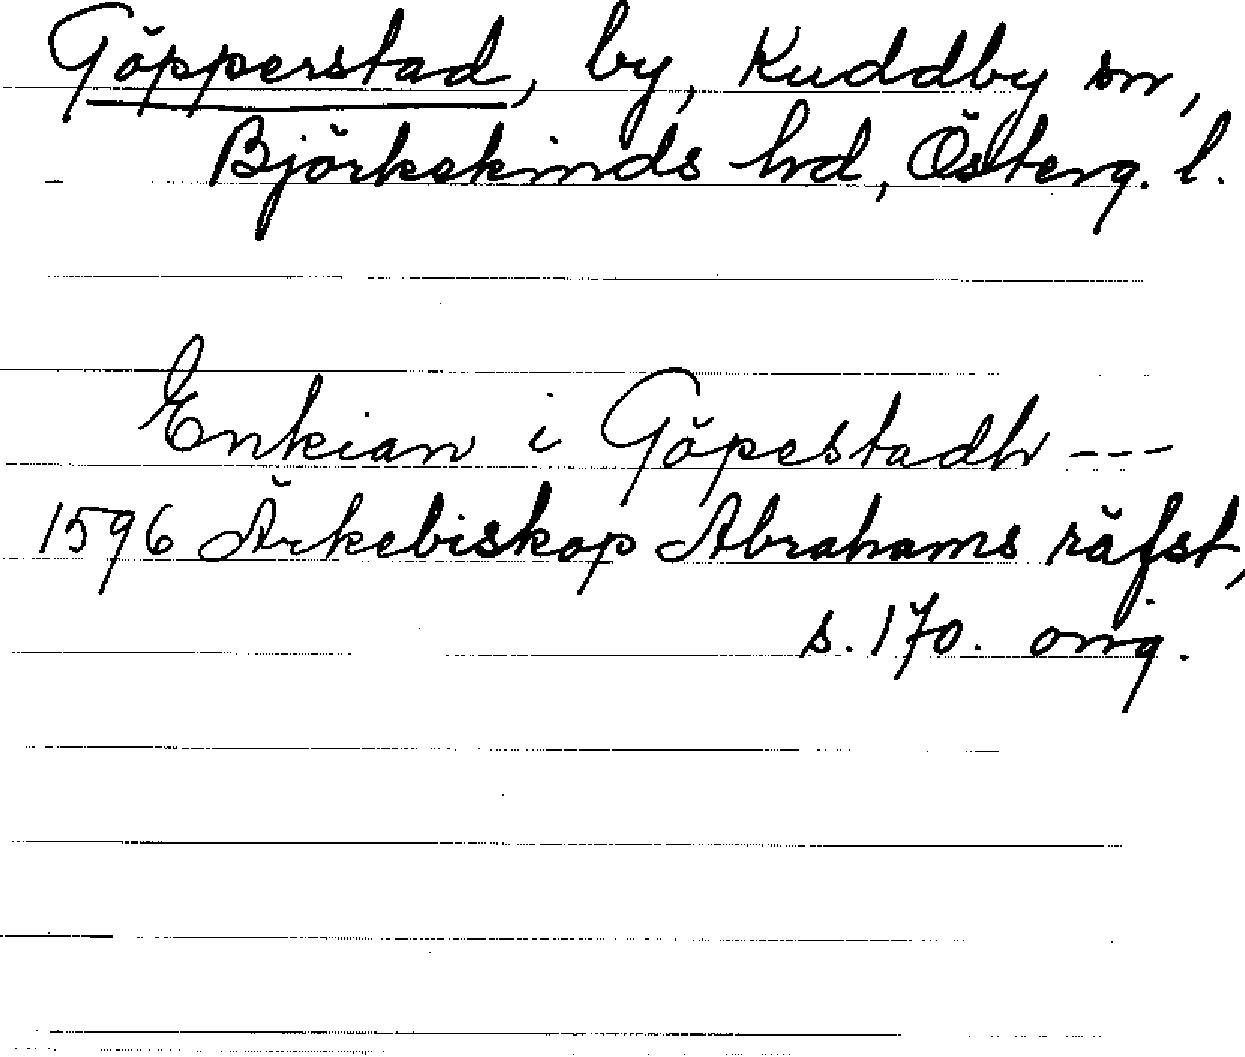 Göpperstad, by, Kuddby sn,
Björkekinds hrd, Österg. l.
Enkian i Göpestadh ---
1596 Ärkebiskop Abrahams räfst,
s. 170. orig.